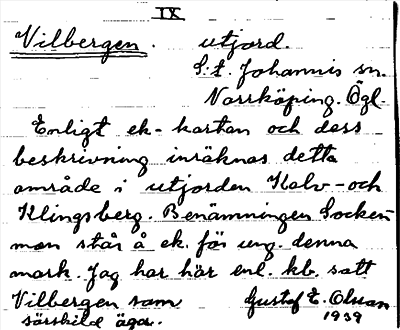 IX
Vilbergen. utjord.
S:t. Johannis sn.
Norrköping. Ögl.
Enligt ek-kartan och dess
beskrivning inräknas detta
område i utjorden Kalv- och
Klingsberg. Benämningen Socken
man står å ek. för ung. denna
mark. Jag har här enl. kb. satt
Vilbergen som Gustaf E. Olsson
särskild ägor. 1939